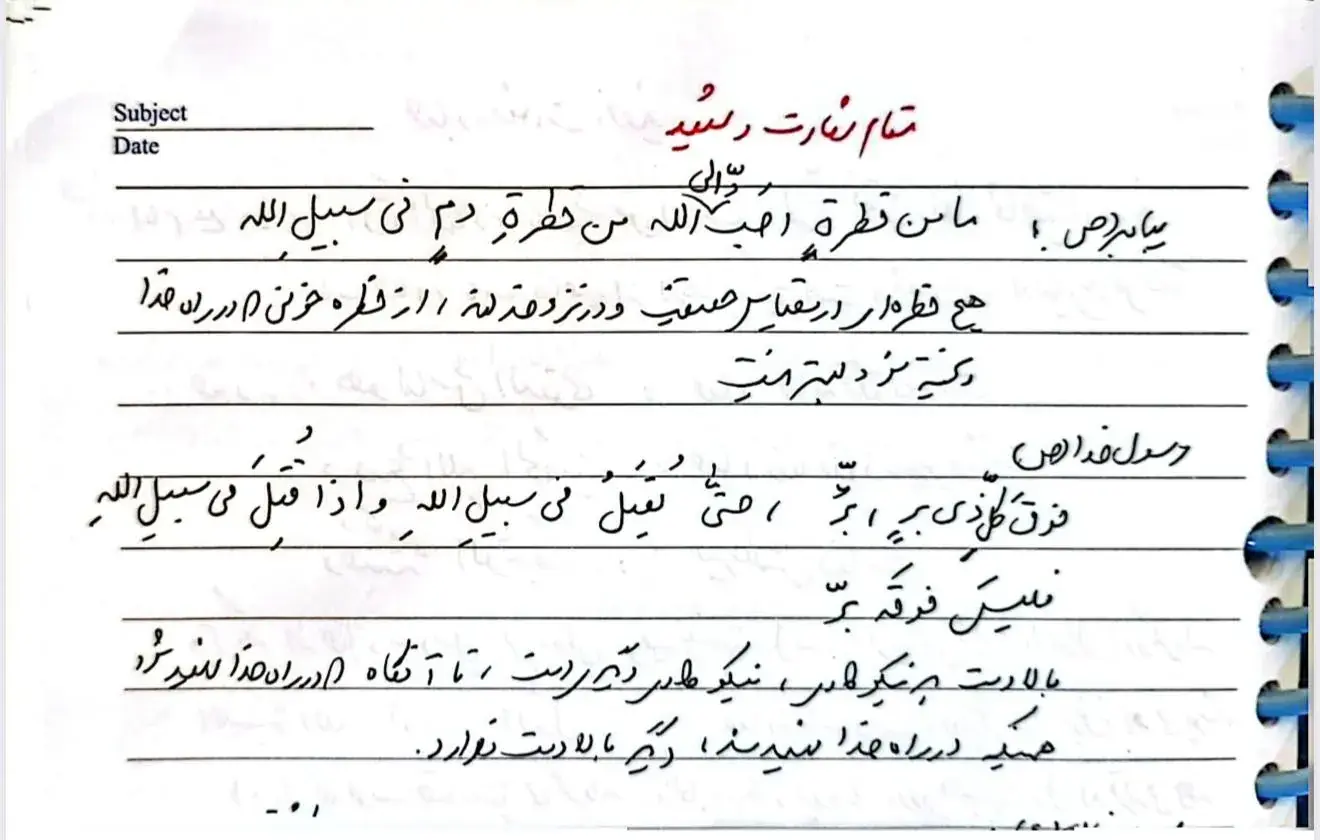 Subject
Date
مقام شهادت و شهید
پیامبر(ص): ما من قطرةٍ اَحَبُّ الی الله من قطرةِ دمٍ فی سبیلِ اللِه
هیچ قطره‌ای در مقیاس حقیقت و در نزد خداوند، از قطره خونی که در راه خدا
ریخته شود بهتر نیست
رسول خدا(ص)
فوقَ کلِّ ذی برٍ، برٌّ، حتّی یُقتَلُ فی سبیلِ اللِه وَ اذا قُتِلَ فی سبیلِ اللهِ
فلیسَ فوقَه برٌّ
بالادست هر نیکوکاری، نیکوکاری دیگری است، تا آنگاه که در راه خدا شهید شود
همینکه در راه خدا شهید شد، دیگر بالادست ندارد.